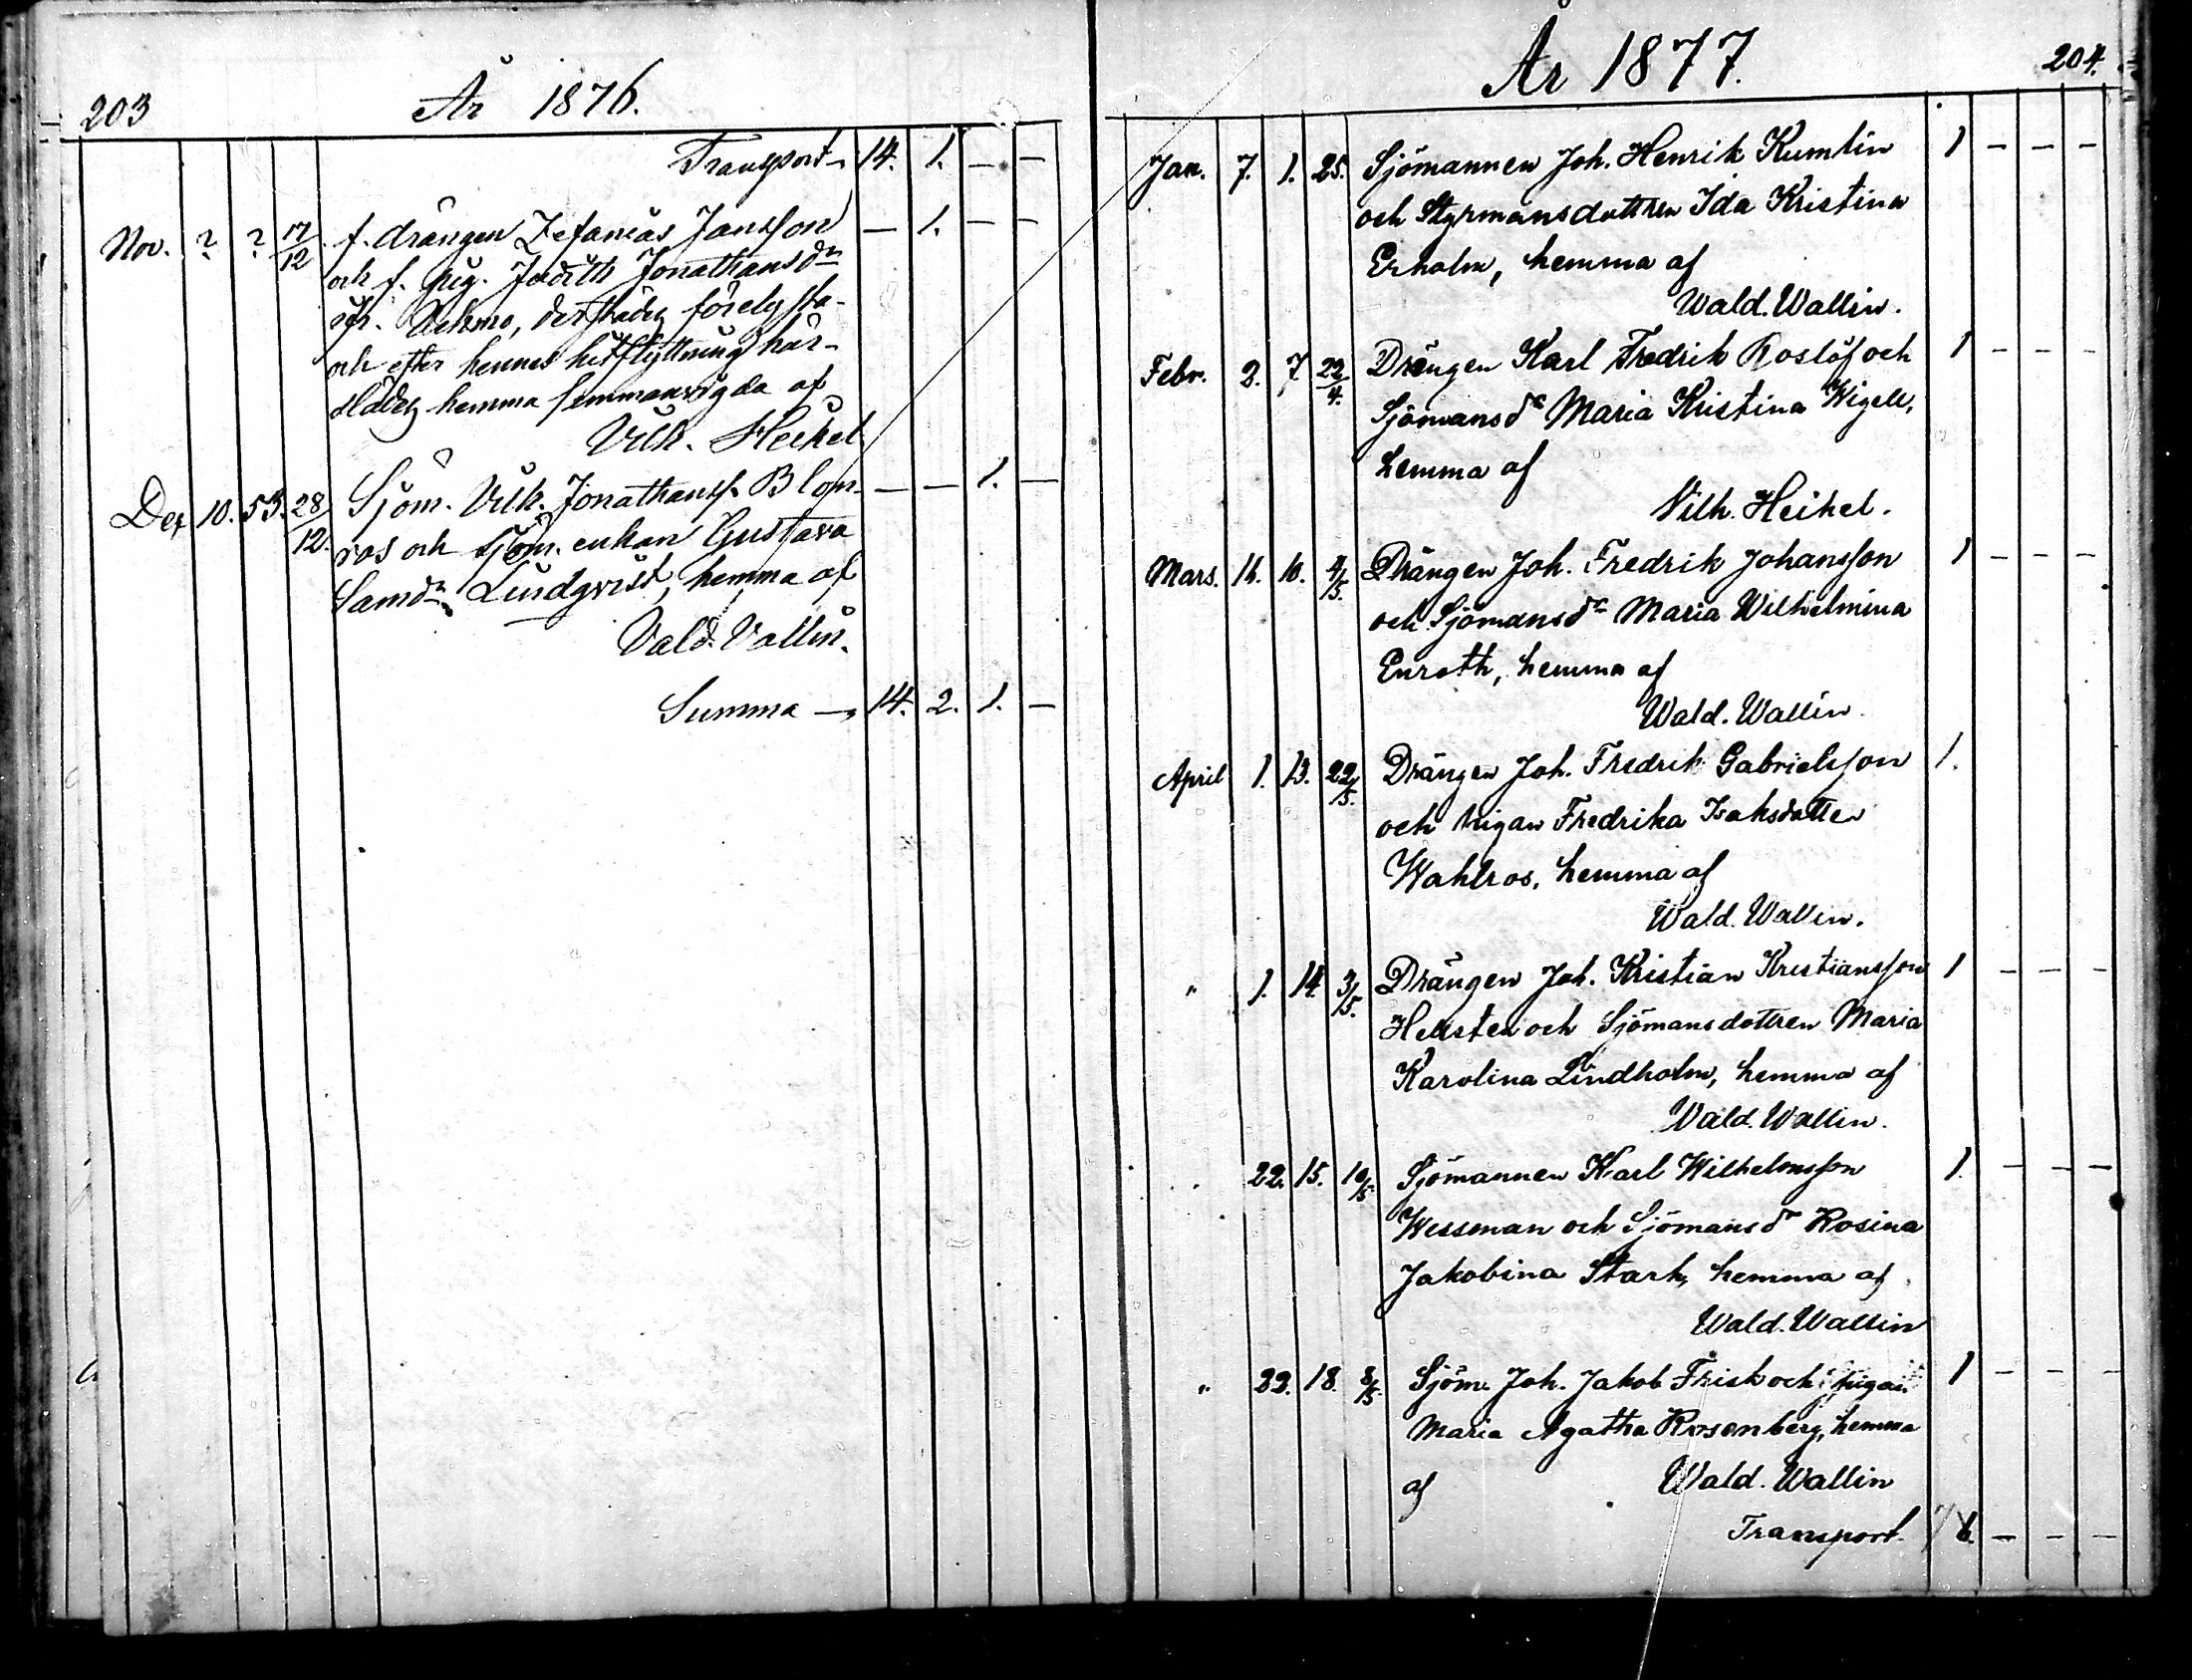 203 År 1876.
Transport 14. 1. — —
Nov. ? ? 17/12 f. drängen Zefanias Jansson — 1. — —
och f. pig. Judith Jonathansdr
fr. Vehmo, derstädes förelysta
och efter hennes hitflyttning här-
städes hemma sammanvigda af
Vilh. Heikel
Dec 10. 53. 28/12. Sjöm. Vilh. Jonathanss. Blom- — — 1. —
ros och sjöm. enkan Gustava
Samdr Lindqvist, hemma af
Vald. Vallin.
Summa — 14. 2. 1. —
År 1877. 204.
Jan. 7. 1. 25. Sjömannen Joh. Henrik Kumlin 1 — — —
och Styrmansdottren Ida Kristina
Erholm, hemma af
Wald. Wallin.
Febr. 2. 7 22/4. Drängen Karl Fredrik Roslöf och 1 — — —
Sjömansdr Maria Kristina Wigell,
hemma af
Vilh. Heikel.
Mars. 16. 10. 4/5. Drängen Joh. Fredrik Johansson 1 — — —
och Sjömansdr Maria Wilhelmina
Enroth, hemma af
Wald. Wallin.
April 1. 13. 22/5. Drängen Joh. Fredrik Gabrielsson 1.
och pigan Fredrika Isaksdotter
Wahlros, hemma af
Wald. Wallin.
" 1. 14 3/5. Drängen Joh. Kristian Kristiansson 1 — — —
Hellsten och Sjömansdottren Maria
Karolina Lindholm, hemma af
Wald. Wallin.
22. 15. 10/5. Sjömannen Karl Wilhelmsson 1. — — —
Wessman och Sjömansdr Rosina
Jakobina Stark, hemma af
Wald. Wallin
" 22. 18. 8/5. Sjöm. Joh. Jakob Frisk och pigan 1 — — —
Maria Agatha Rosenberg, hemma
af Wald. Wallin
Transport. 7 — — —